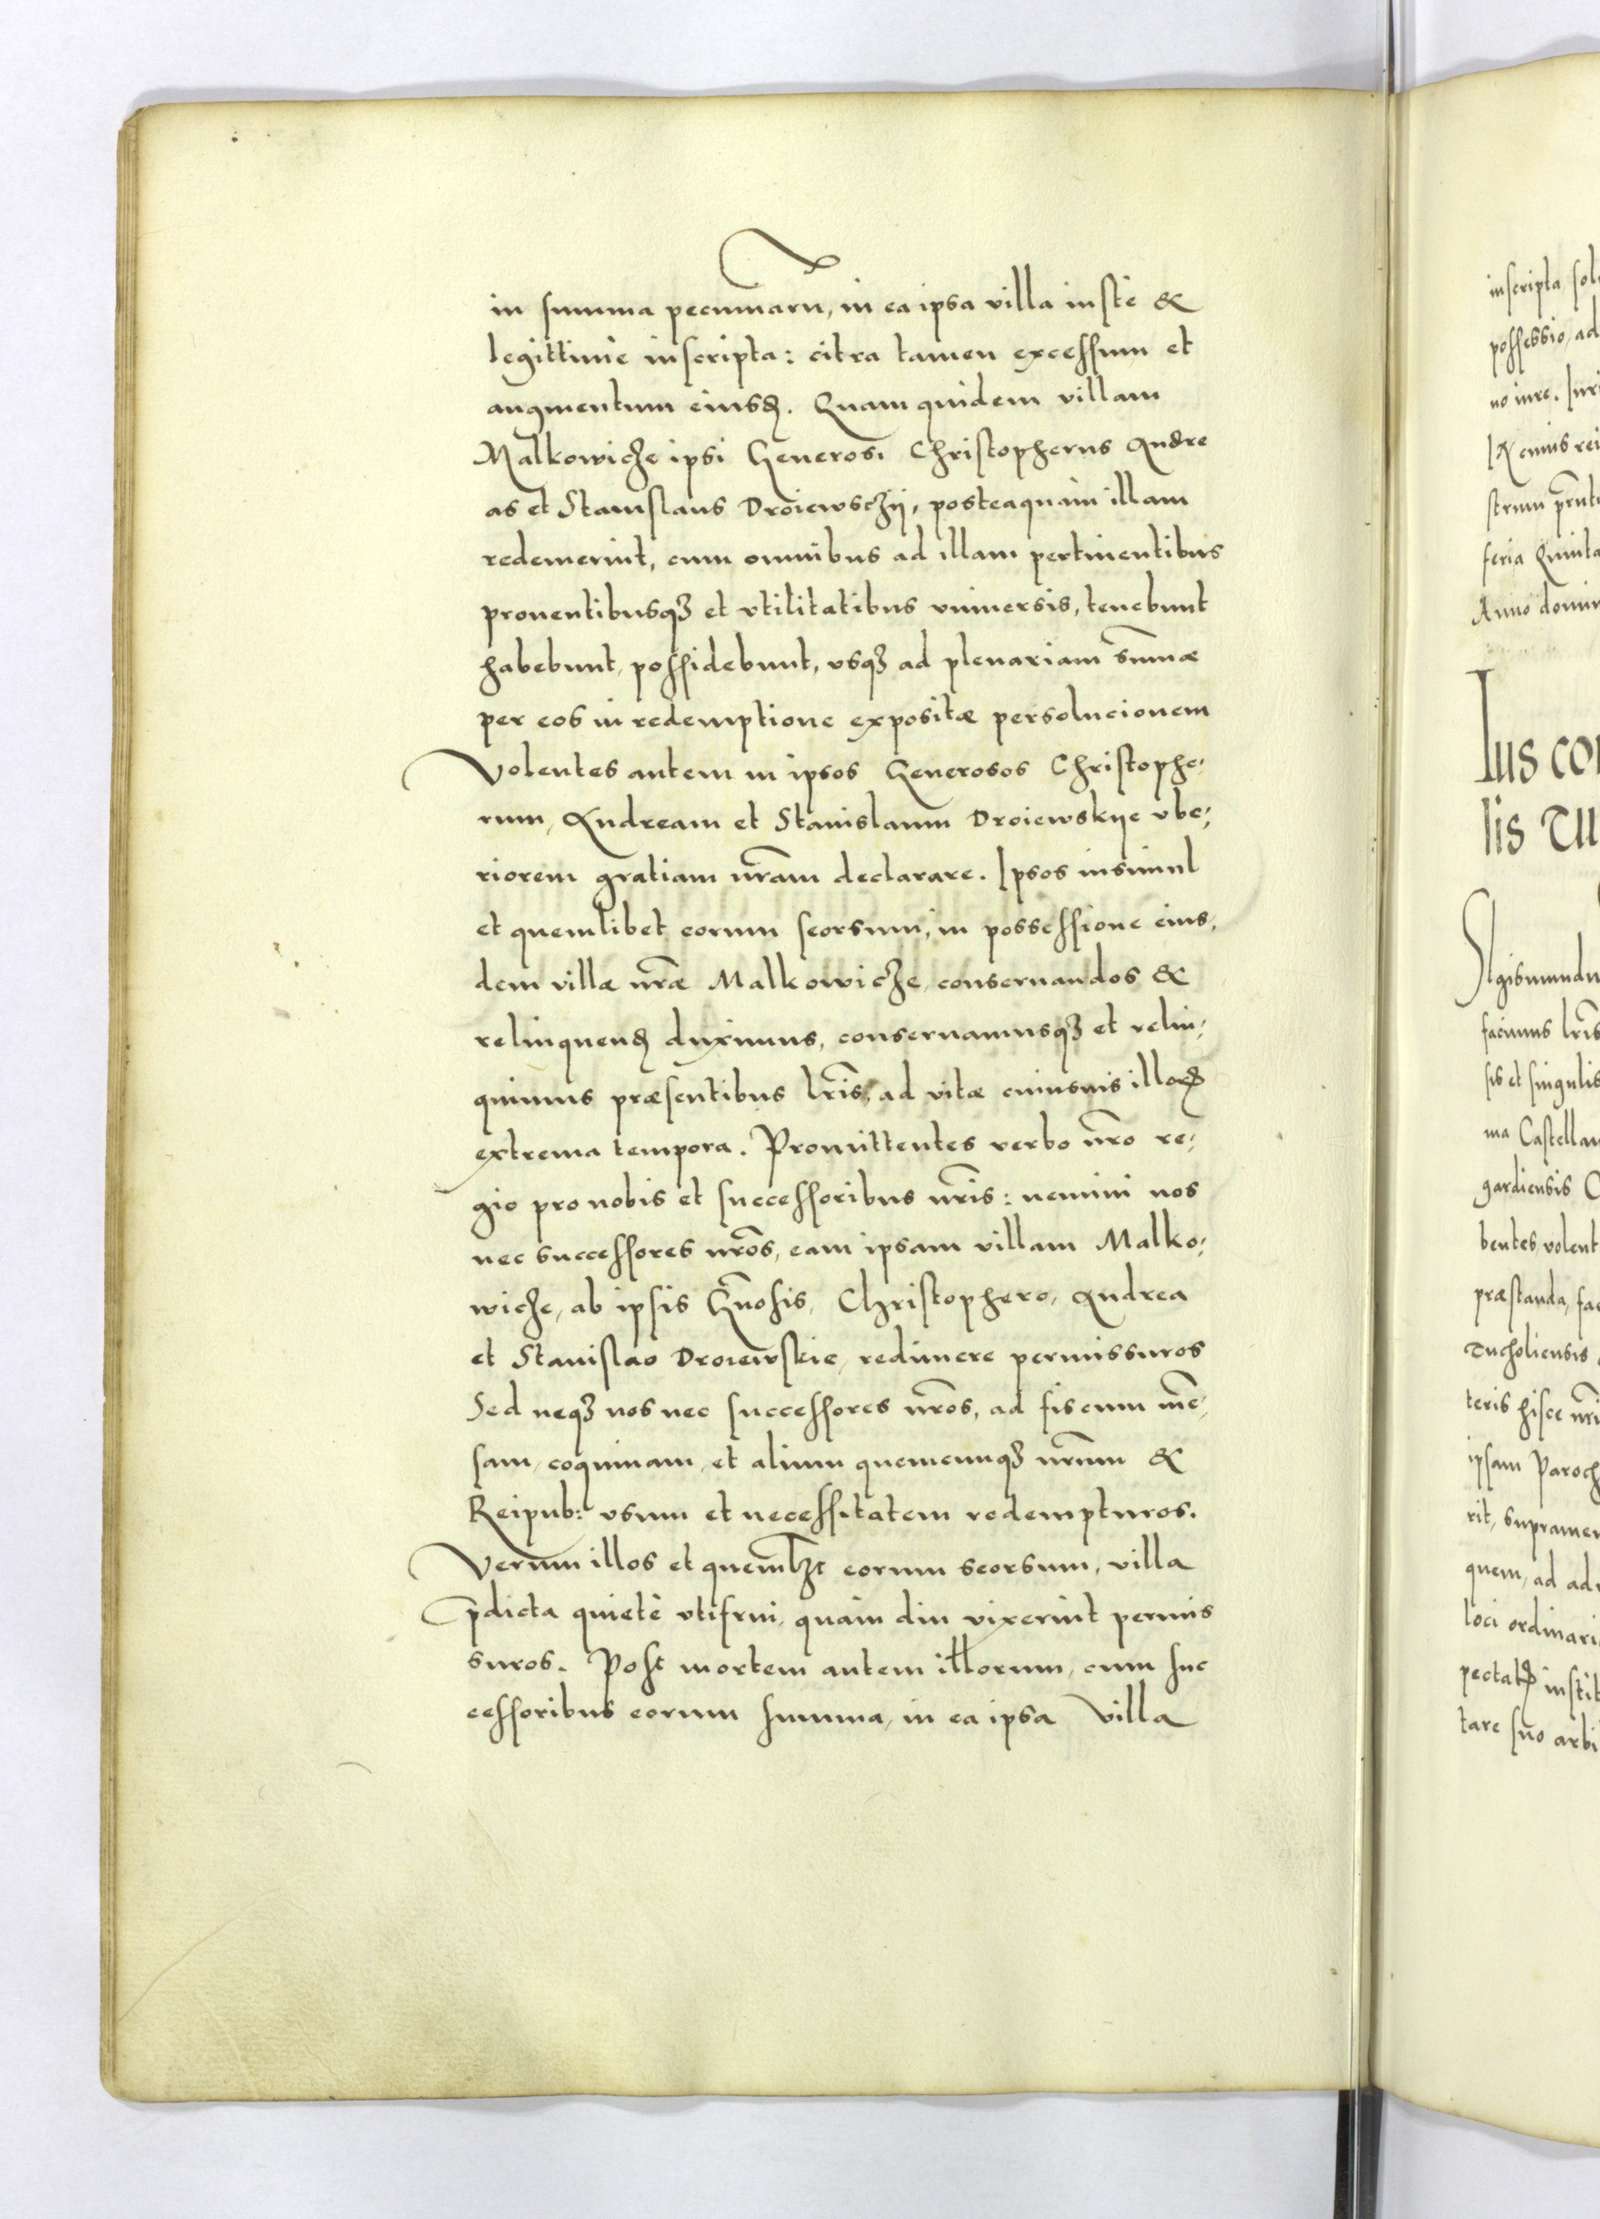 in summa pecuniaru, in ea ipsa villa iustè &
legittimè inscripta: citra tamen excessum et
augmentum eiusd. Quam quidem villam
Malkowicze ipsi Generosi Christopherus Andre
as et Stanislaus Droiewsczij, posteaquàm illam
redemerint, cum omnibus ad illam pertinentibus
prouentibusqȝ et vtilitatibus vniuersis, tenebunt
habebunt, possidebunt, vsqȝ ad plenariam sum̃æ
per eos in redemptione expositæ persolucionem
Volentes autem in ipsos Generosos Christophe-
rum, Andream et Stanislaum Droiewskije vbe-
riorem gratiam nr̃am declarare. Ipsos insimul
et quemlibet eorum seorsum, in possessione eius-
dem villæ nr̃æ Malkowicze, conseruandos &
relinquend duximus, conseruamusqȝ et relin-
quimus præsentibus lr̃is, ad vitæ cuiusuis illoꝝ
extrema tempora. Promittentes verbo nr̃o re-
gio pro nobis et successoribus nr̃is: nemini nos
nec successores nr̃os, eam ipsam villam Malko-
wicze, ab ipsis Gñosis, Christophero, Andrea
et Stanislao Droiewskie, redimere permissuros
Sed neqȝ nos nec successores nr̃os, ad fiscum mẽ-
sam, coquinam, et alium quemcunqȝ nr̃um &
Reipub: vsum et necessitatem redempturos.
Verum illos et quemlȝt eorum seorsum, villa
p̃dicta quietè vtifrui, quàm diu vixerint permis
suros. Post mortem autem illorum, cum suc
cessoribus eorum summa, in ea ipsa villa
inscripta, sol
possessio, ad
no iure. Iuri
In cuius rei
strum p̃nt
feria Quinta
Anno domin
Ius con
lis Tu
Sigismundu
facimus lr̃is
sis et singulis
ma Castellan
gardiensis C
bentes, volent
præstanda, fa
Tucholiensis
teris hisce nr̃i
ipsam Paroch
rit, supramen
quem, ad ad
loci ordinari
pectatꝝ instit
tare suo arbi